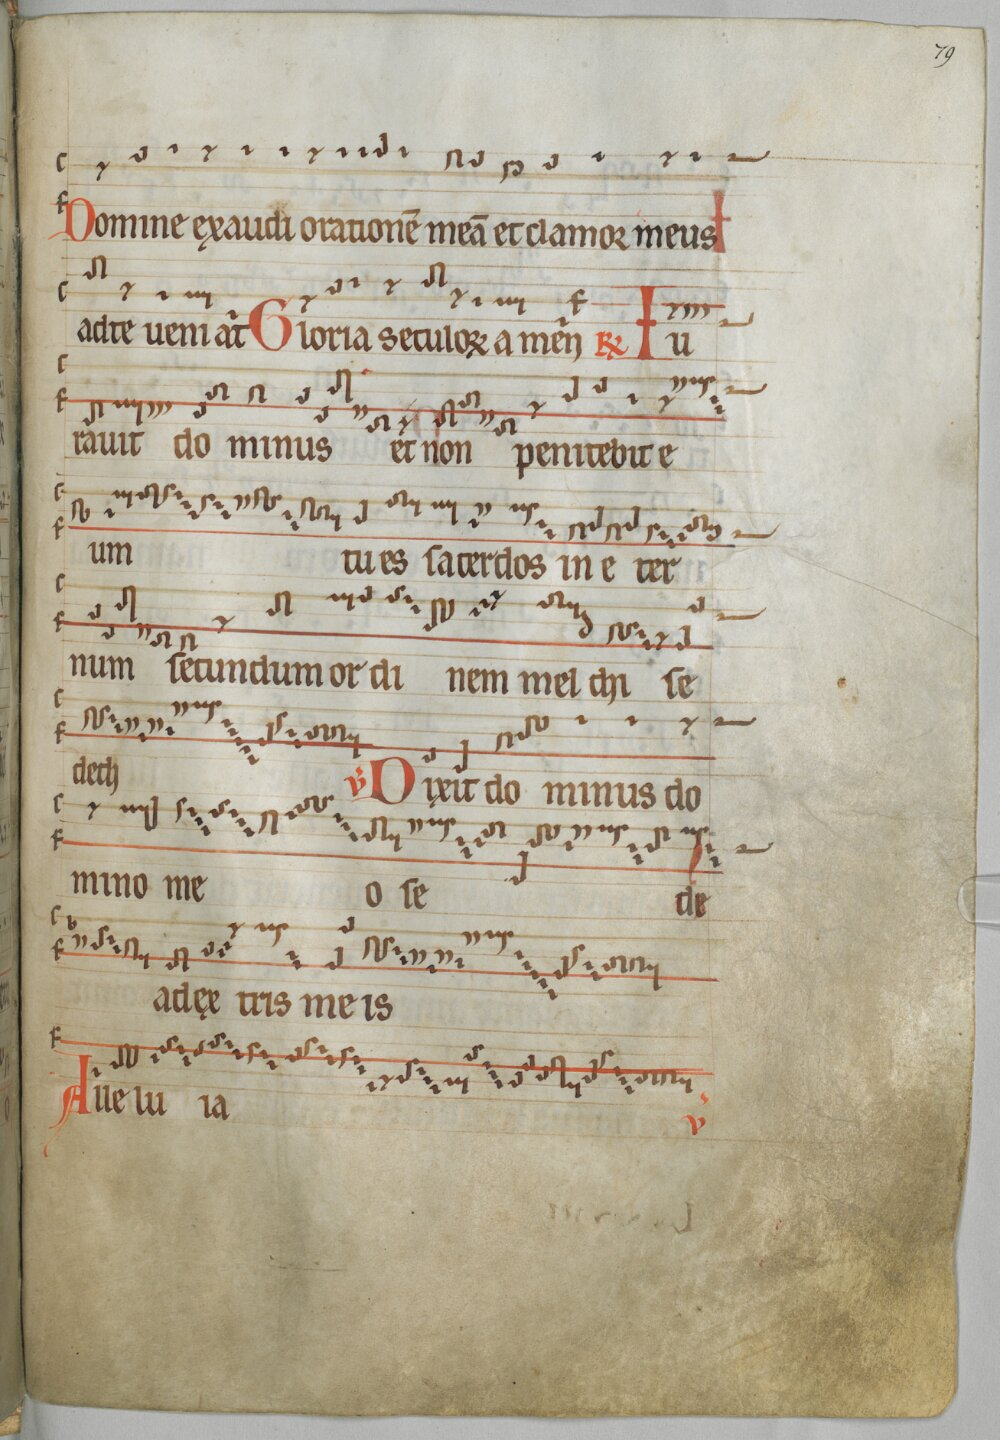 79
Domine exaudi orationē meā et clamoꝛ meus
ad te veni at̄ Gloria seculoꝝ a men̄ ℟ Iu
rauit do minus et non penitebit e
um tu es sacerdos in e ter
num secundum or di nem mel chi se
dech ℣ Dixit do minus do
mino me o se de
a dex tris me is
Alle lu ia ℣